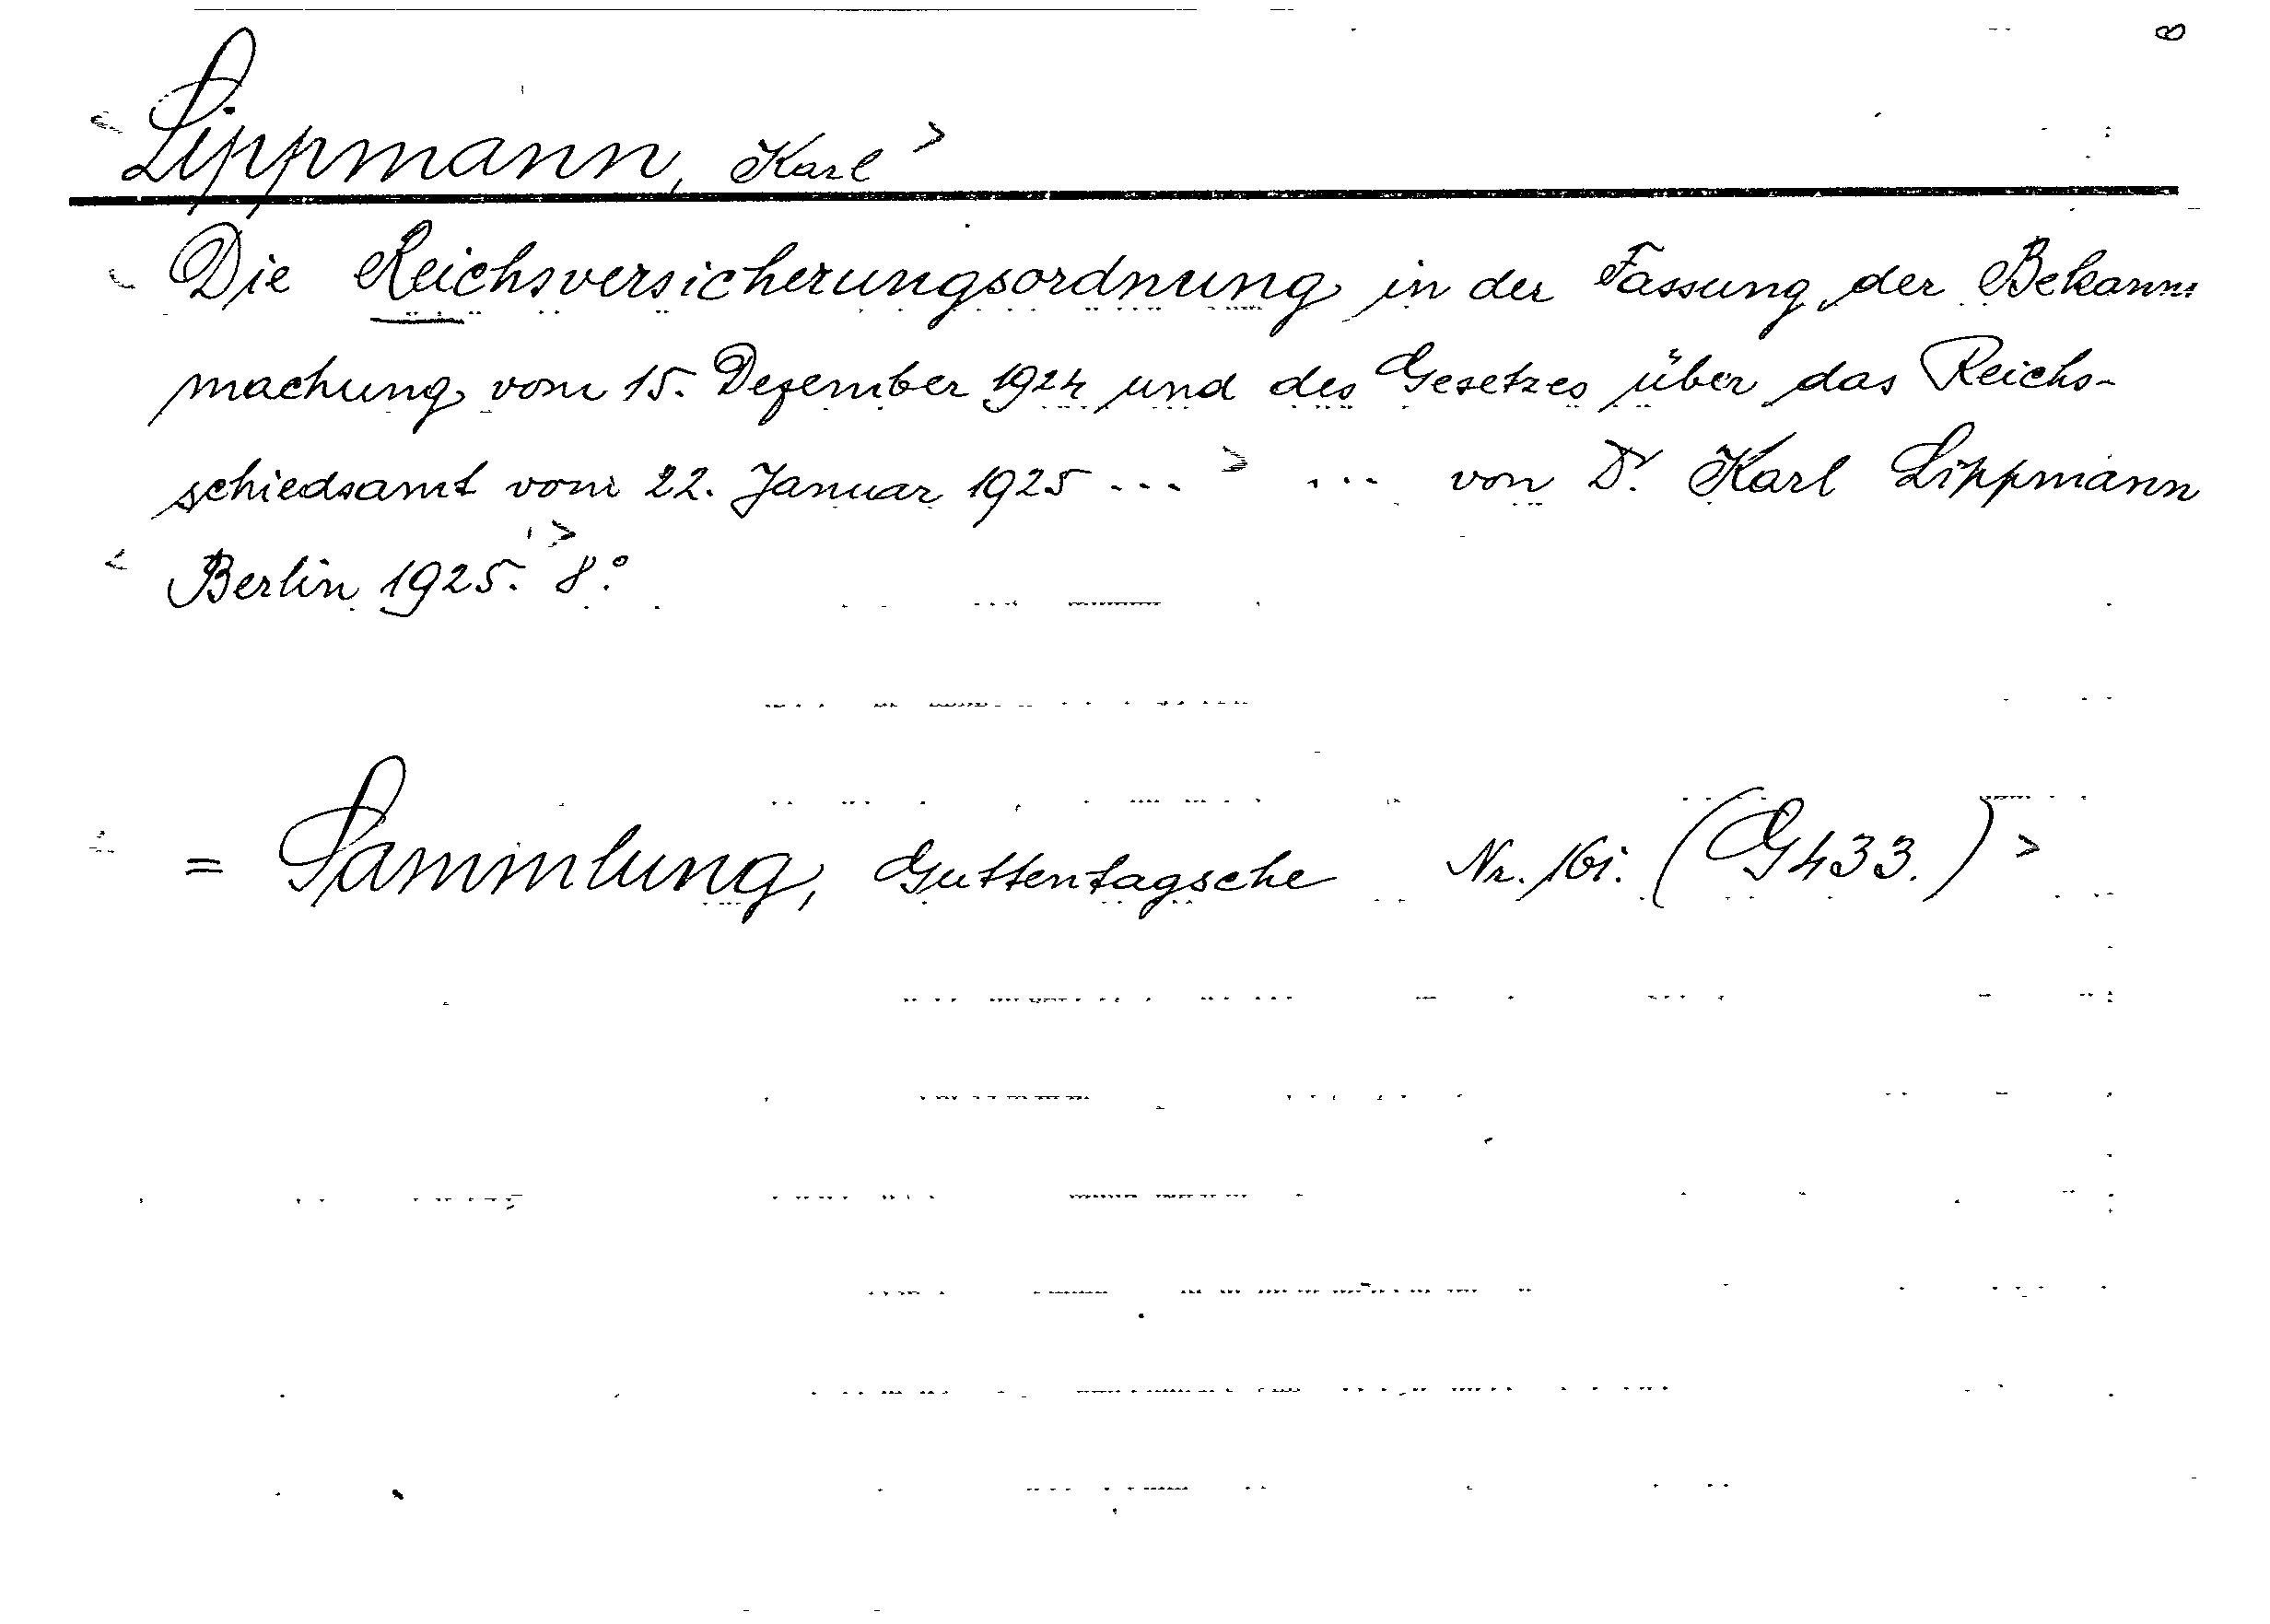 < Lippmann, Karl >
< Die Reichsversicherungsordnung in der Fassung der Bekann
machung vom 15. Dezember 1924 und des Gesetzes über das Reichs-
schiedsamt vom 22. Januar 1925 ... > ... von Dr. Karl Lippmann
< Berlin 1925. > 8°.
= Sammlung, Guttentagsche Nr. 16i. (G 433.) >